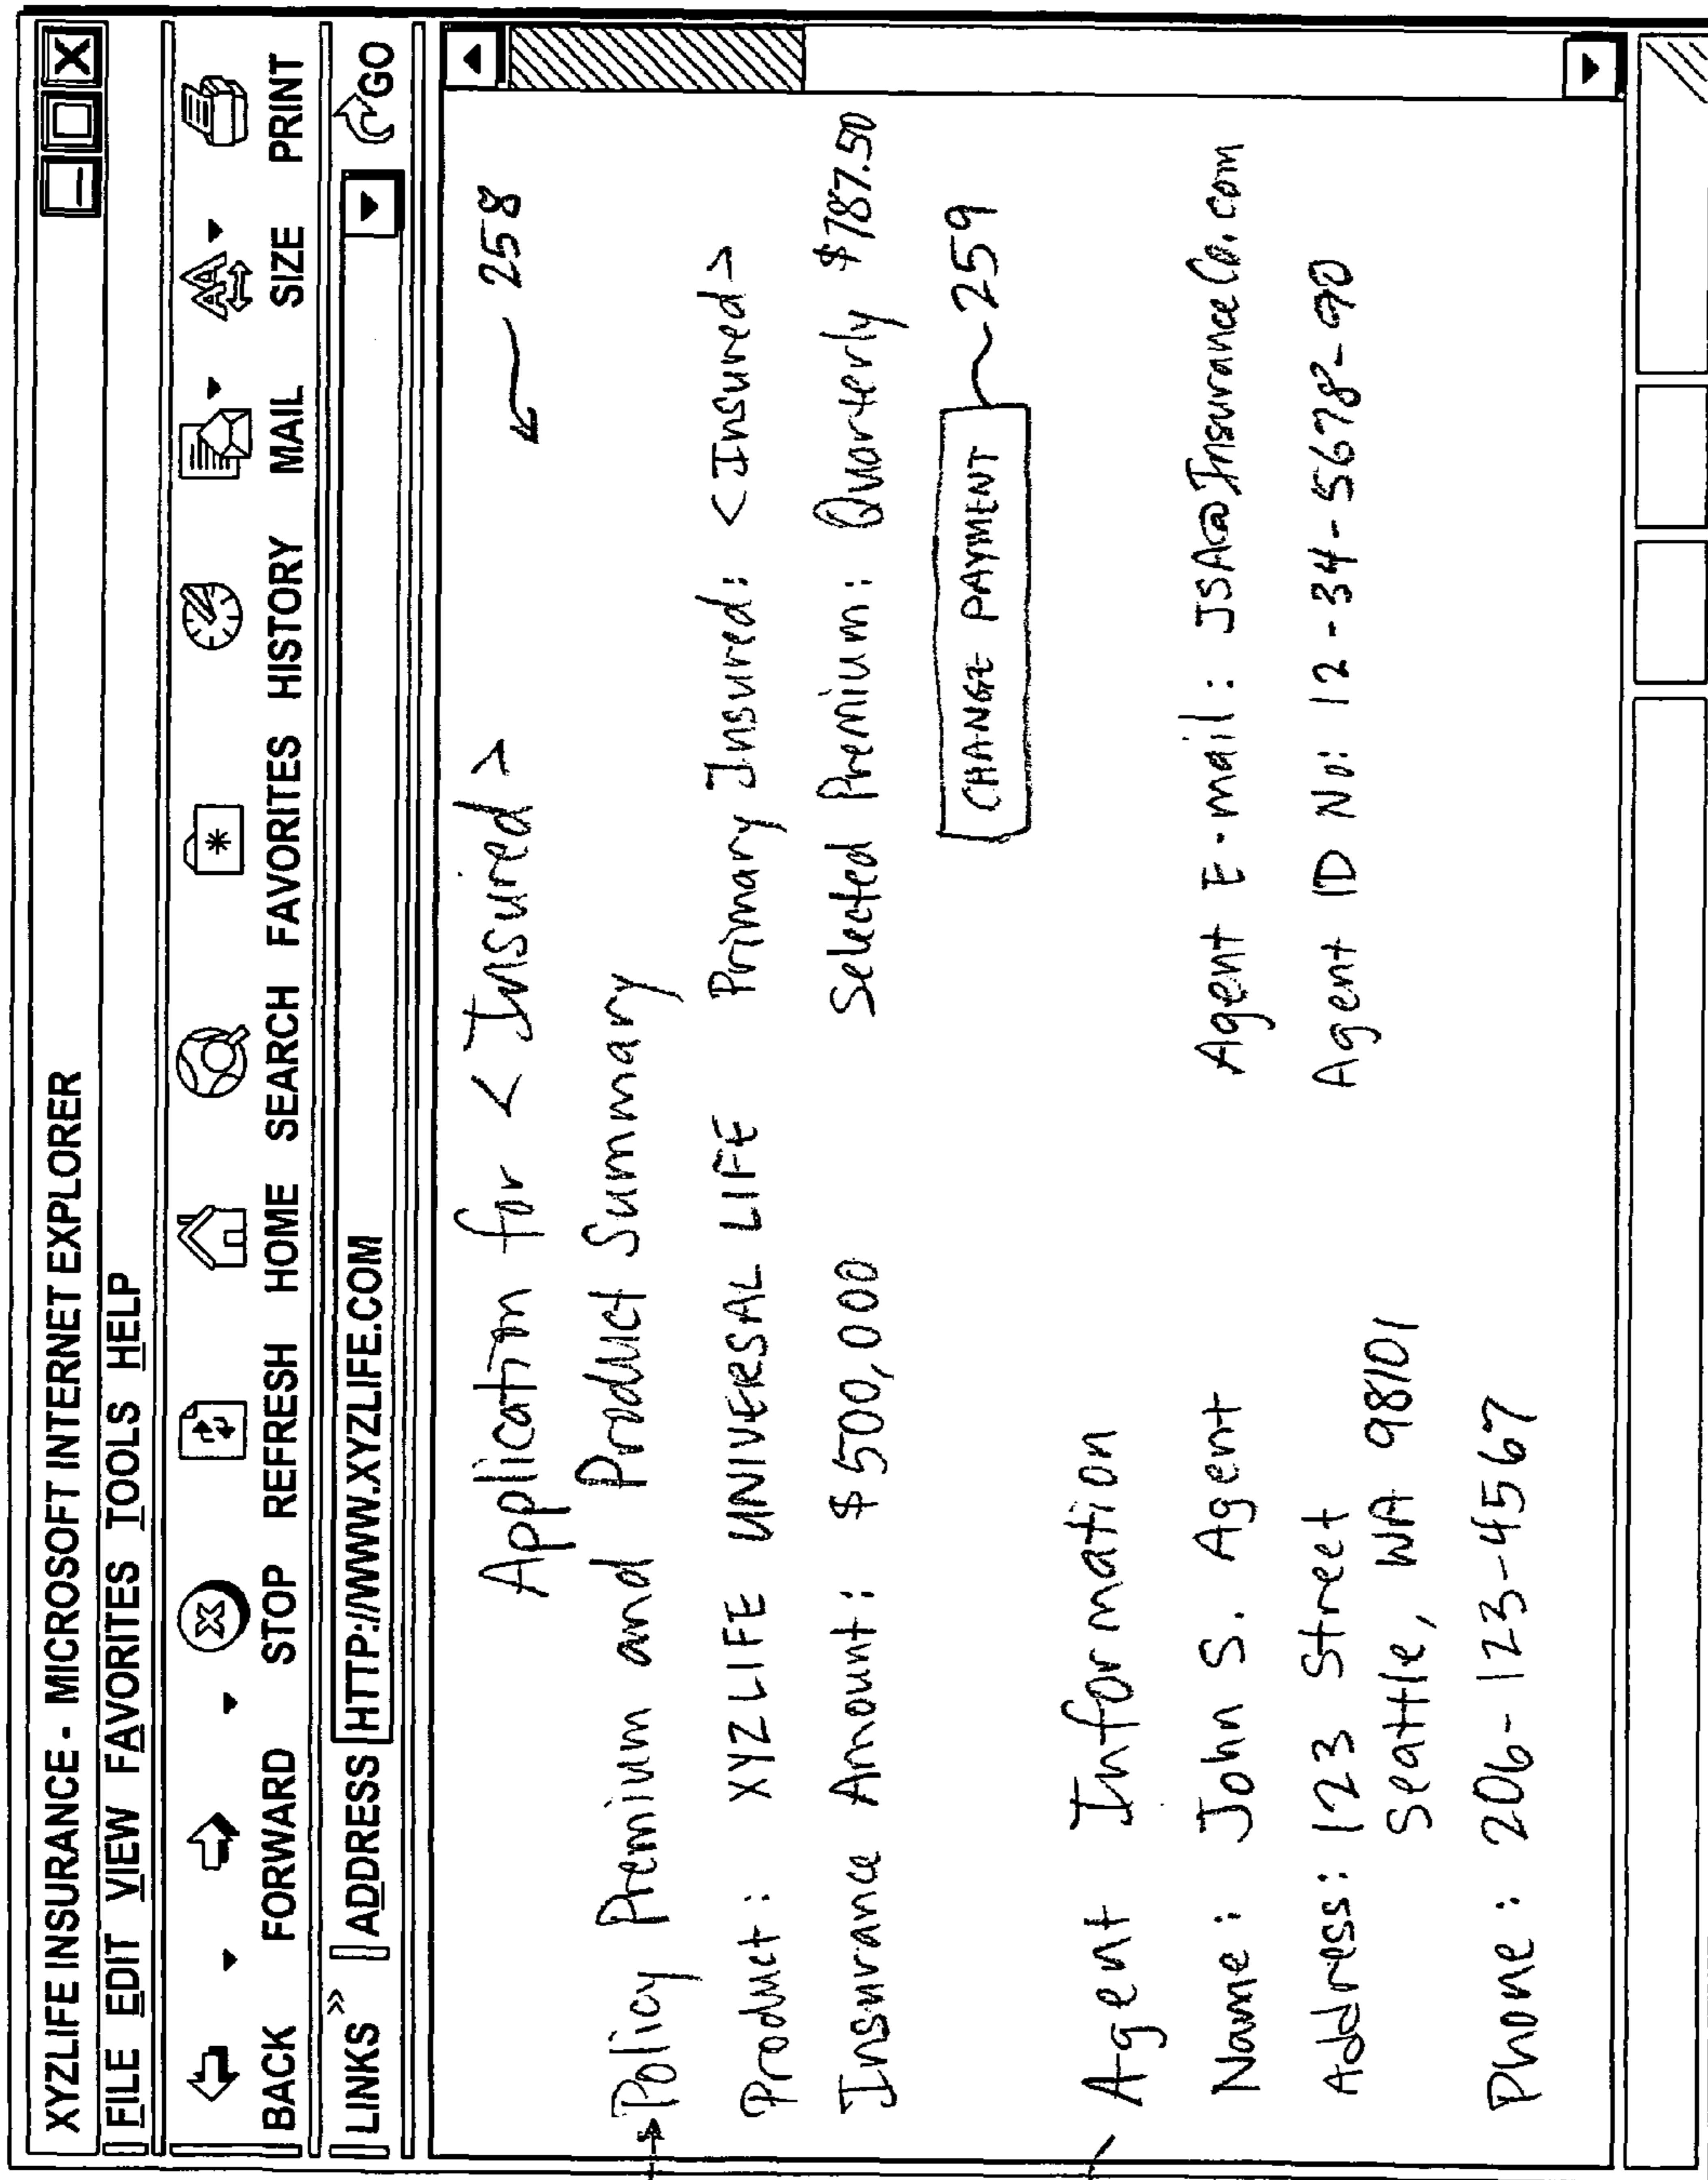 XYZLIFE INSURANCE - MICROSOFT INTERNET EXPLORER
FILE EDIT VIEW FAVORITES TOOLS HELP
BACK FORWARD STOP REFRESH HOME SEARCH FAVORITES HISTORY MAIL SIZE PRINT
LINKS » ADDRESS HTTP://WWW.XYZLIFE.COM GO
Application for <Insured> 258
Policy Premium and Product Summary
Product: XYZLIFE UNIVERSAL LIFE Primary Insured: <Insured>
Insurance Amount: $500,000 Selected Premium: Quarterly $787.50
CHANGE PAYMENT 259
Agent Information
Name: John S. Agent Agent E-mail: JSA@InsuranceCo.com
Address: 123 Street Agent ID No: 12-34-5678-90
Seattle, WA 98101
Phone: 206-123-4567